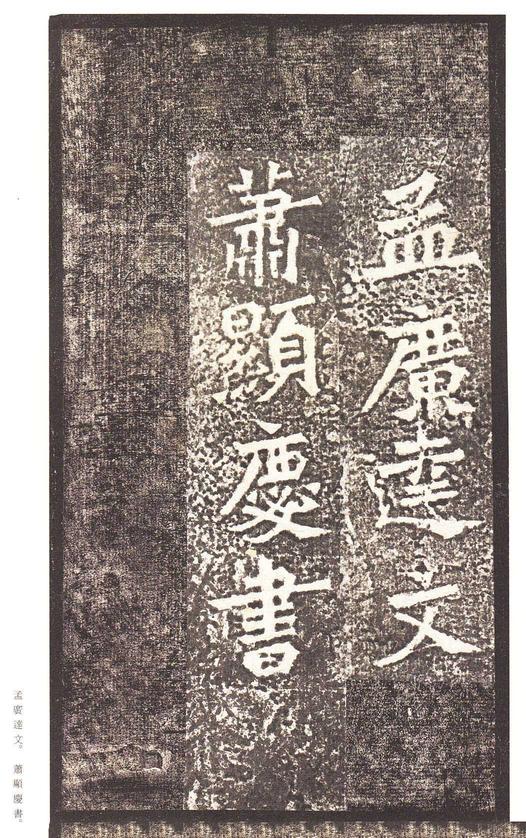 孟廣達文
蕭顯慶書
孟廣達文。蕭顯慶書。